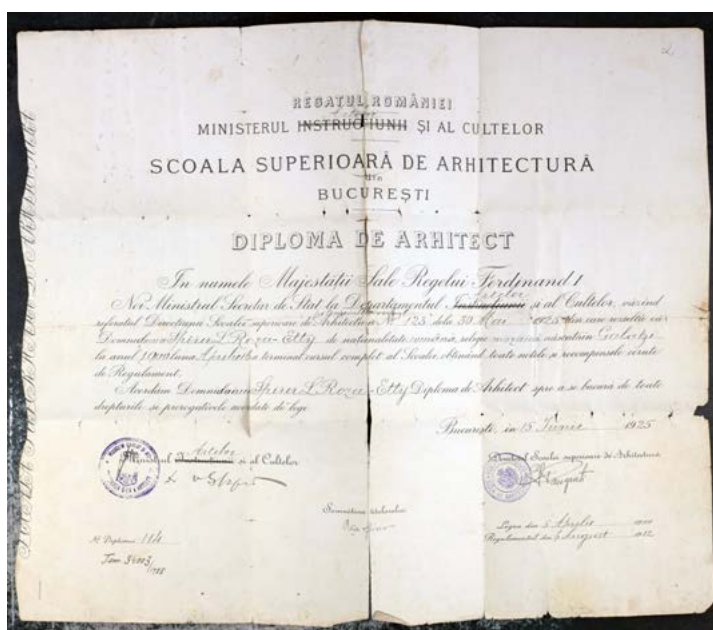 REGATUL ROMÂNIEI
Artelor
MINISTERUL INSTRUCȚIUNII ȘI AL CULTELOR
SCOALA SUPERIOARĂ DE ARHITECTURĂ
din
BUCUREȘTI
DIPLOMA DE ARHITECT
In numele Majestății Sale Regelui Ferdinand I
Artelor
Noi Ministrul Secretar de Stat la Departamentul Instrucțiunii și al Cultelor, văzind
referatul Direcțiunii Scoalei superioare de Arhitectura Nº 123 dela 30 Mai 1925 din care rezultă că
Spirer L. Roza-Etty de naționalitate română, religie născută in Galatzi
la anul luna Aprilie a terminat cursul complet al Scoalei, obținând toate notele și recompensele cerute
de Regulament.
Acordăm Spirer L. Roza-Etty Diploma de Arhitect spre a se bucură de toate
drepturile și prerogativele acordate de lege
București, in 15 Iunie 1925
Artelor
Ministrul Instrucțiunii și al Cultelor
Directorul Scoalei superioare de Arhitectura
Semnătura titularului
Nº Diplomei 114
Legea din Aprilie
Regulamentul din August 1912